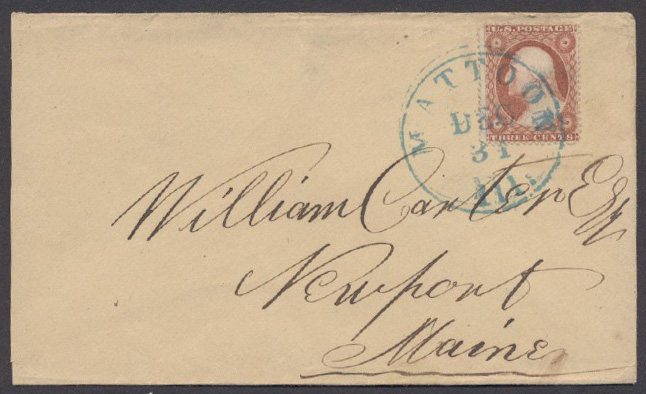 U.S. POSTAGE
THREE CENTS
MATTOON
DEC
31
Ills.
William Carter Esq
Newport
Maine